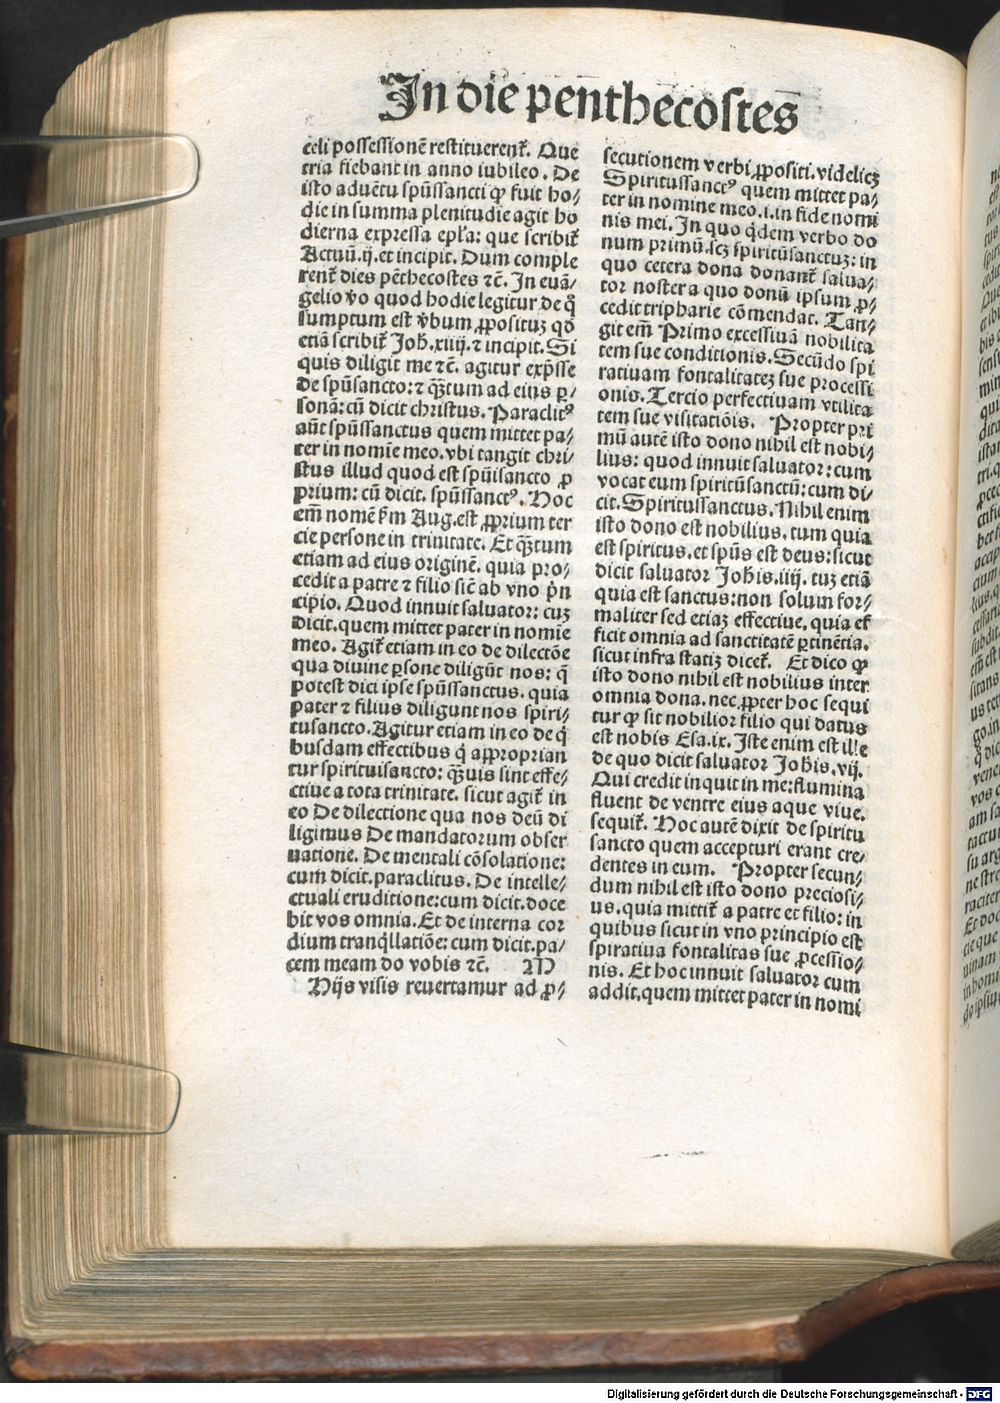 In die penthecostes
celi possessionē restituerent᷑. Que
tria fiebant in anno iubileo. De
isto aduētu spūssancti qꝫ fuit ho
die in summa plenitudie agit ho
dierna expressa epl̄a: que scribit᷑
Actuū.ij.et incipit. Dum comple
rent᷑ dies pēthecostes ⁊c̄. In euā⸗
gelio v̄o quod hodie legitur de q̄
sumptum est v̄bum ꝓpositūꝫ qđ
etiā scribit᷑ Joh̄.xiiij.⁊ incipit. Si
quis diligit me ⁊c̄. agitur exp̄sse
de spūsancto:⁊ qꝫ̄tum ad eius ꝑ⸗
sonā:cū dicit christus. Paraclitꝰ
aūt spūssanctus quem mittet pa⸗
ter in nomīe meo. vbi tangit chri⸗
stus illud quod est spūisancto ꝓ
prium: cū dicit. spūssanctꝰ. Hoc
em̄ nomē f̄m Aug.est ꝓprium ter
cie persone in trinitate. Et qꝫ̄tum
etiam ad eius originē. quia pro⸗
cedit a patre ⁊ filio sic̄ ab vno p̄n
cipio. Quod innuit saluator: cuꝫ
dicit.quem mittet pater in nomīe
meo. Agit᷑ etiam in eo de dilectōe
qua diuine ꝑsone diligūt nos: q̄
potest dici ipse spūssanctus. quia
pater ⁊ filius diligunt nos spiri⸗
tusancto. Agitur etiam in eo de q̄
busdam effectibus q̄ approprian
tur spirituisancto: qꝫ̄uis sint effe⸗
ctiue a tota trinitate. sicut agit᷑ in
eo De dilectione qua nos deū di
ligimus De mandatorum obser
uatione. De mentali cōsolatione:
cum dicit.paraclitus. De intelle⸗
ctuali eruditione:cum dicit.doce
bit vos omnia. Et de interna cor
dium tranq̄llatiōe: cum dicit.pa⸗
cem meam do vobis ⁊c̄. M
Hijs visis reuertamur ad ꝓ⸗
secutionem verbi ꝓpositi.videlicꝫ
Spiritussanctꝰ quem mittet pa⸗
ter in nomine meo.i.in fide nomi
nis mei. In quo q̄dem verbo do
num primū.scꝫ spiritūsanctuꝫ: in
quo cetera dona donant᷑ salua⸗
tor noster a quo donū ipsum ꝓ⸗
cedit tripharie cōmendat. Tan⸗
git em̄ Primo excessiuā nobilita
tem sue conditionis. Secūdo spi
ratiuam fontalitateꝫ sue processi
onis. Tercio perfectiuam vtilita
tem sue visitatiōis. Propter pri
mū autē isto dono nihil est nobi⸗
lius: quod innuit saluator: cum
vocat eum spiritūsanctū: cum di⸗
cit. Spiritussanctus. Nihil enim
isto dono est nobilius. tum quia
est spiritus. et spūs est deus: sicut
dicit saluator Joh̄is.iiij. tuꝫ etiā
quia est sanctus:non solum for⸗
maliter sed etiaꝫ effectiue. quia ef
ficit omnia ad sanctitatē ꝑtinētia.
sicut infra statiꝫ dicet᷑. Et dico qꝫ
isto dono nihil est nobilius inter
omnia dona. nec ꝓpter hoc sequi
tur qꝫ sit nobilior filio qui datus
est nobis Esa.ix. Iste enim est ille
de quo dicit saluator Joh̄is.vij.
Qui credit inquit in me:flumina
fluent de ventre eius aque viue.
sequit᷑. Hoc autē dixit de spiritu
sancto quem accepturi erant cre⸗
dentes in eum. Propter secun⸗
dum nihil est isto dono preciosi⸗
us. quia mittit᷑ a patre et filio: in
quibus sicut in vno principio est
spiratiua fontalitas sue ꝓcessio⸗
nis. Et hoc innuit saluator cum
addit.quem mittet pater in nomi
Digitalisierung gefördert durch die Deutsche Forschungsgemeinschaft - DFG